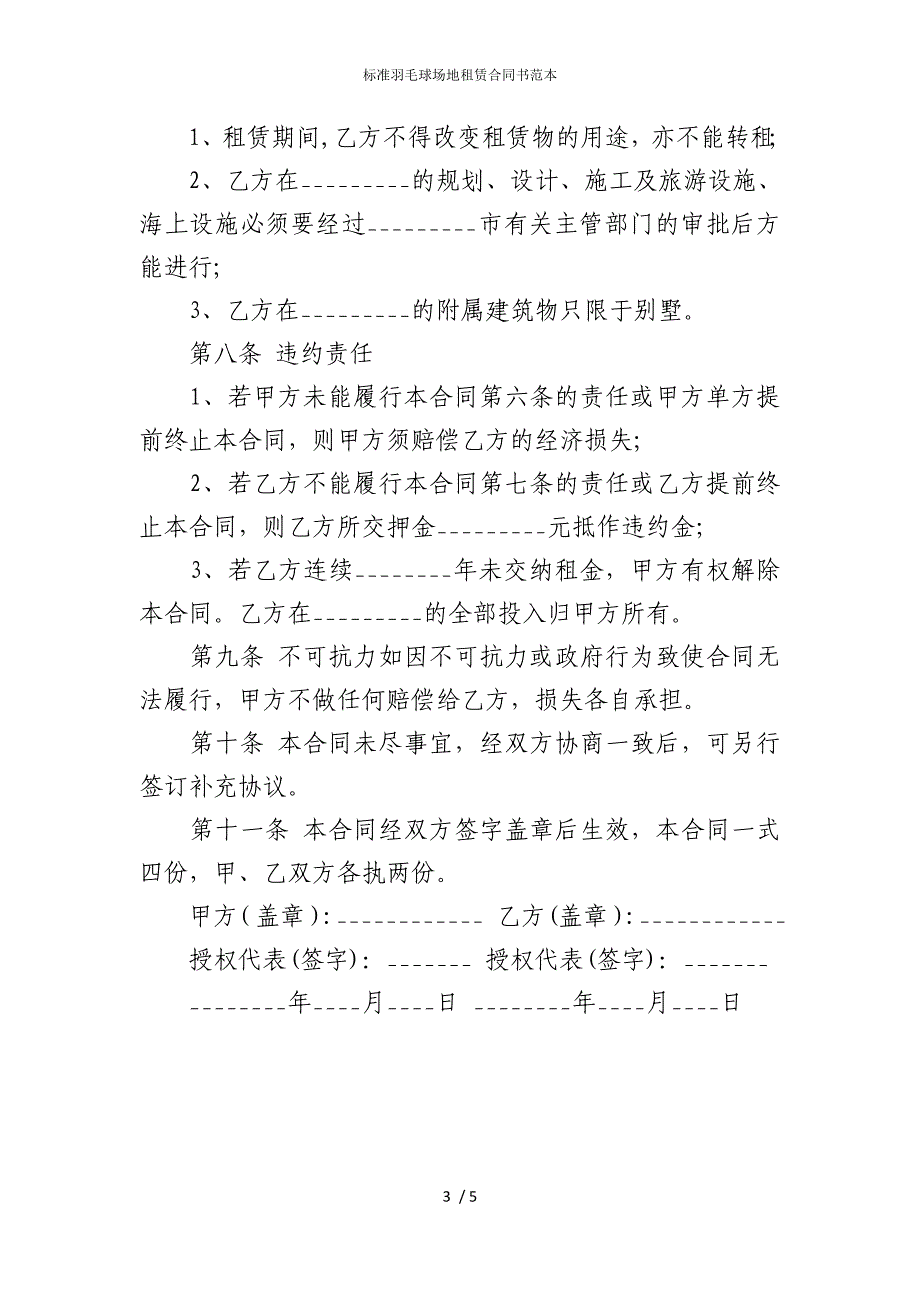 标准羽毛球场地租赁合同书范本
1、租赁期间,乙方不得改变租赁物的用途，亦不能转租;
2、乙方在_________的规划、设计、施工及旅游设施、
海上设施必须要经过_________市有关主管部门的审批后方
能进行;
3、乙方在_________的附属建筑物只限于别墅。
第八条 违约责任
1、若甲方未能履行本合同第六条的责任或甲方单方提
前终止本合同，则甲方须赔偿乙方的经济损失;
2、若乙方不能履行本合同第七条的责任或乙方提前终
止本合同，则乙方所交押金_________元抵作违约金;
3、若乙方连续________年未交纳租金，甲方有权解除
本合同。乙方在_________的全部投入归甲方所有。
第九条 不可抗力如因不可抗力或政府行为致使合同无
法履行，甲方不做任何赔偿给乙方，损失各自承担。
第十条 本合同未尽事宜，经双方协商一致后，可另行
签订补充协议。
第十一条 本合同经双方签字盖章后生效，本合同一式
四份，甲、乙双方各执两份。
甲方(盖章):____________ 乙方(盖章):____________
授权代表(签字)：_______ 授权代表(签字)：_______
________年____月____日 ________年____月____日
3 / 5